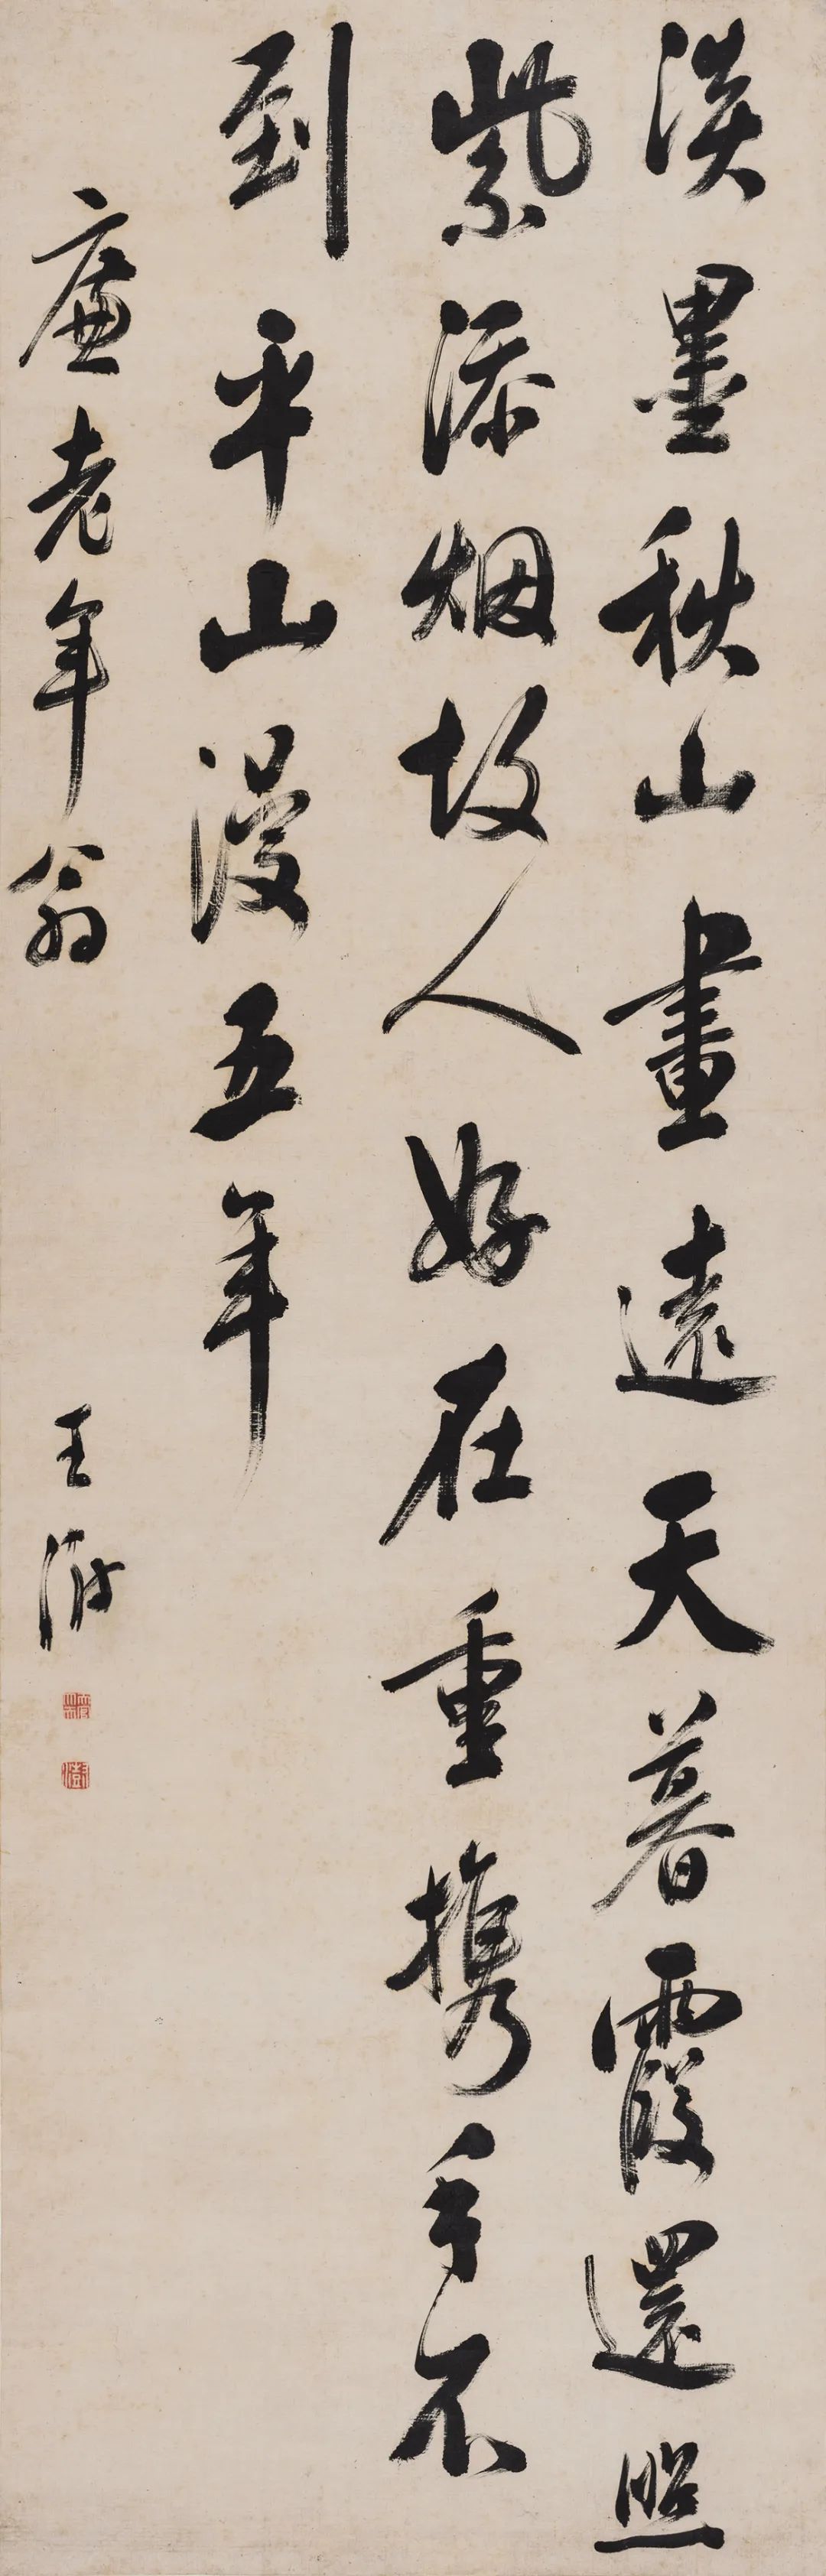 淡墨秋山畫遠天暮霞還照
紫添烟故人好在重攜手不
到平山漫五年
廉老年翁
王澍